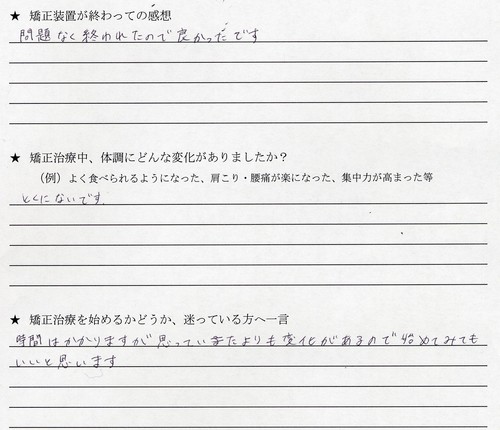 ★ 矯正装置が終わっての感想
問題なく終われたので良かったです
★ 矯正治療中、体調にどんな変化がありましたか？
（例）よく食べられるようになった、肩こり・腰痛が楽になった、集中力が高まった等
とくにないです。
★ 矯正治療を始めるかどうか、迷っている方へ一言
時間はかかりますが思っていたよりも変化があるので始めてみても
いいと思います